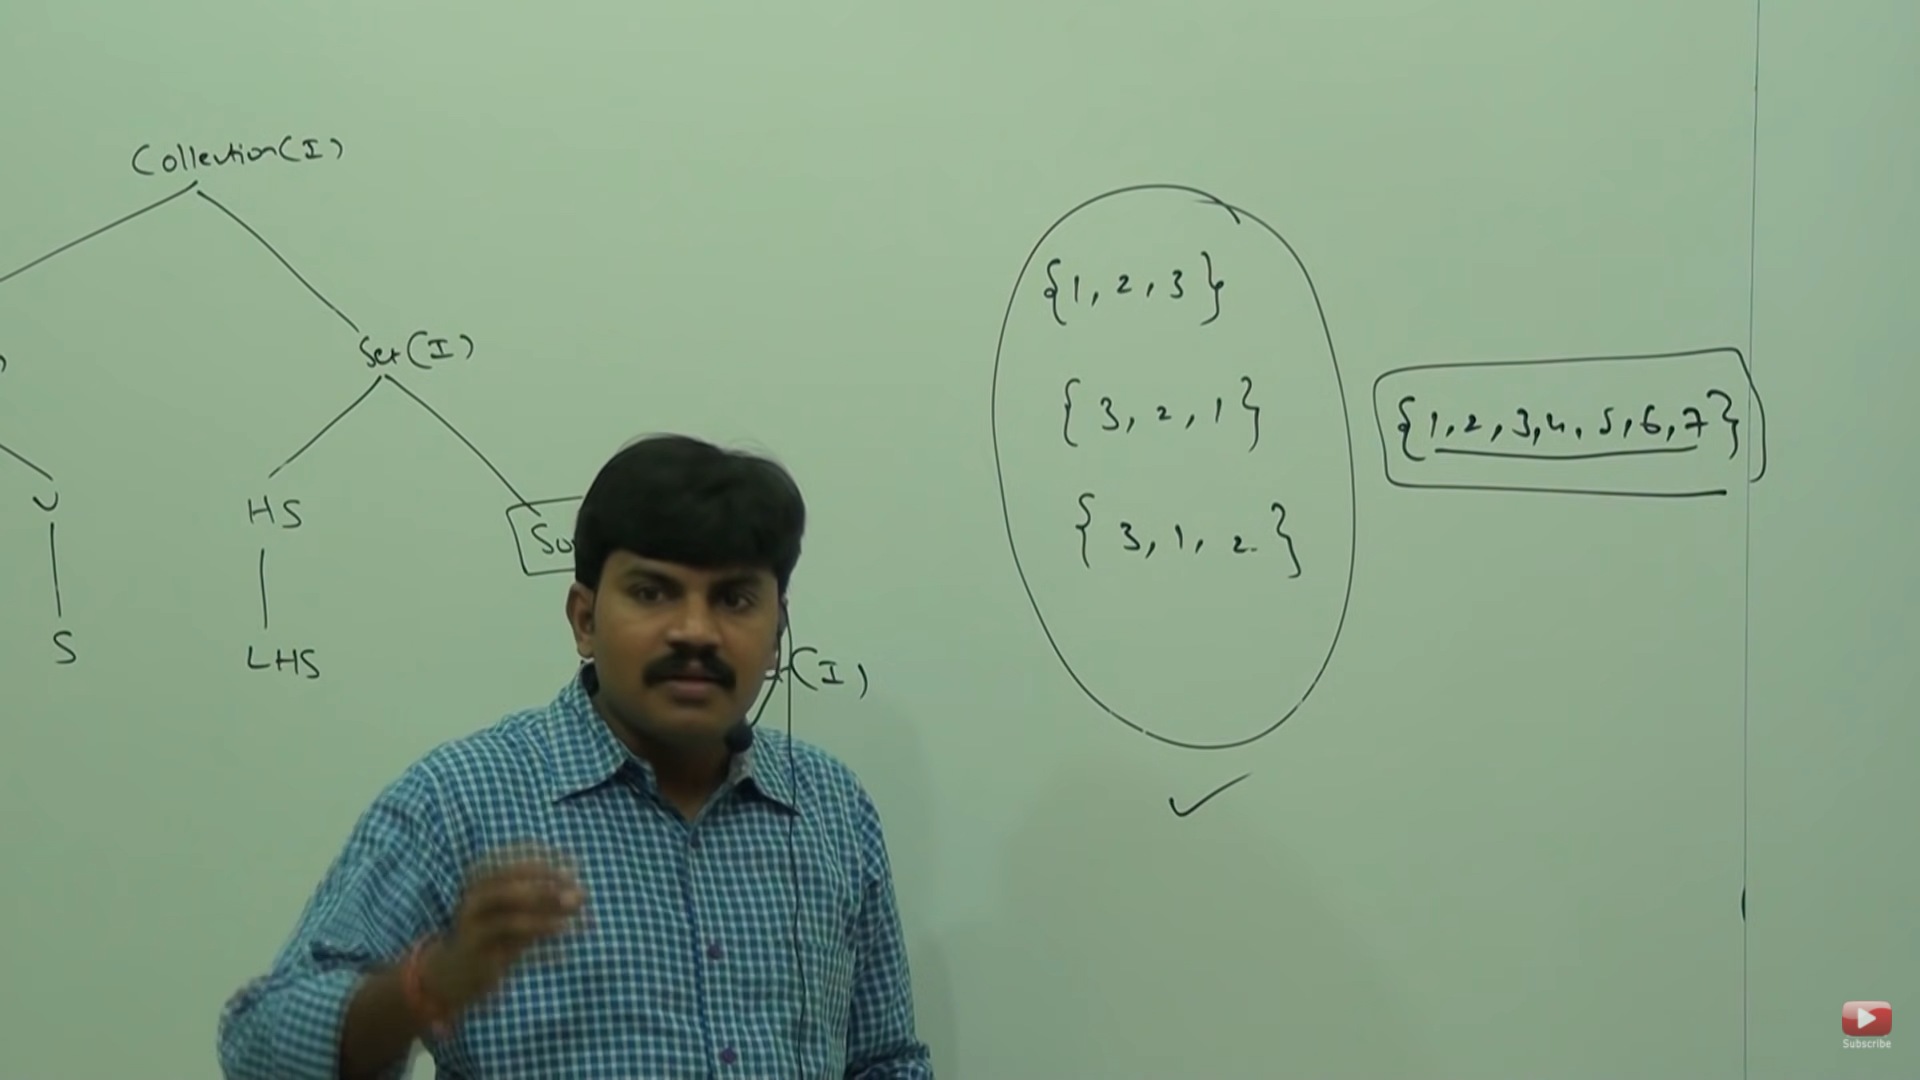 Collection(I)
Set(I)
)
V
S
HS
LHS
So
(I)
{1, 2, 3}
{3, 2, 1}
{3, 1, 2}
{1, 2, 3, 4, 5, 6, 7}
Subscribe